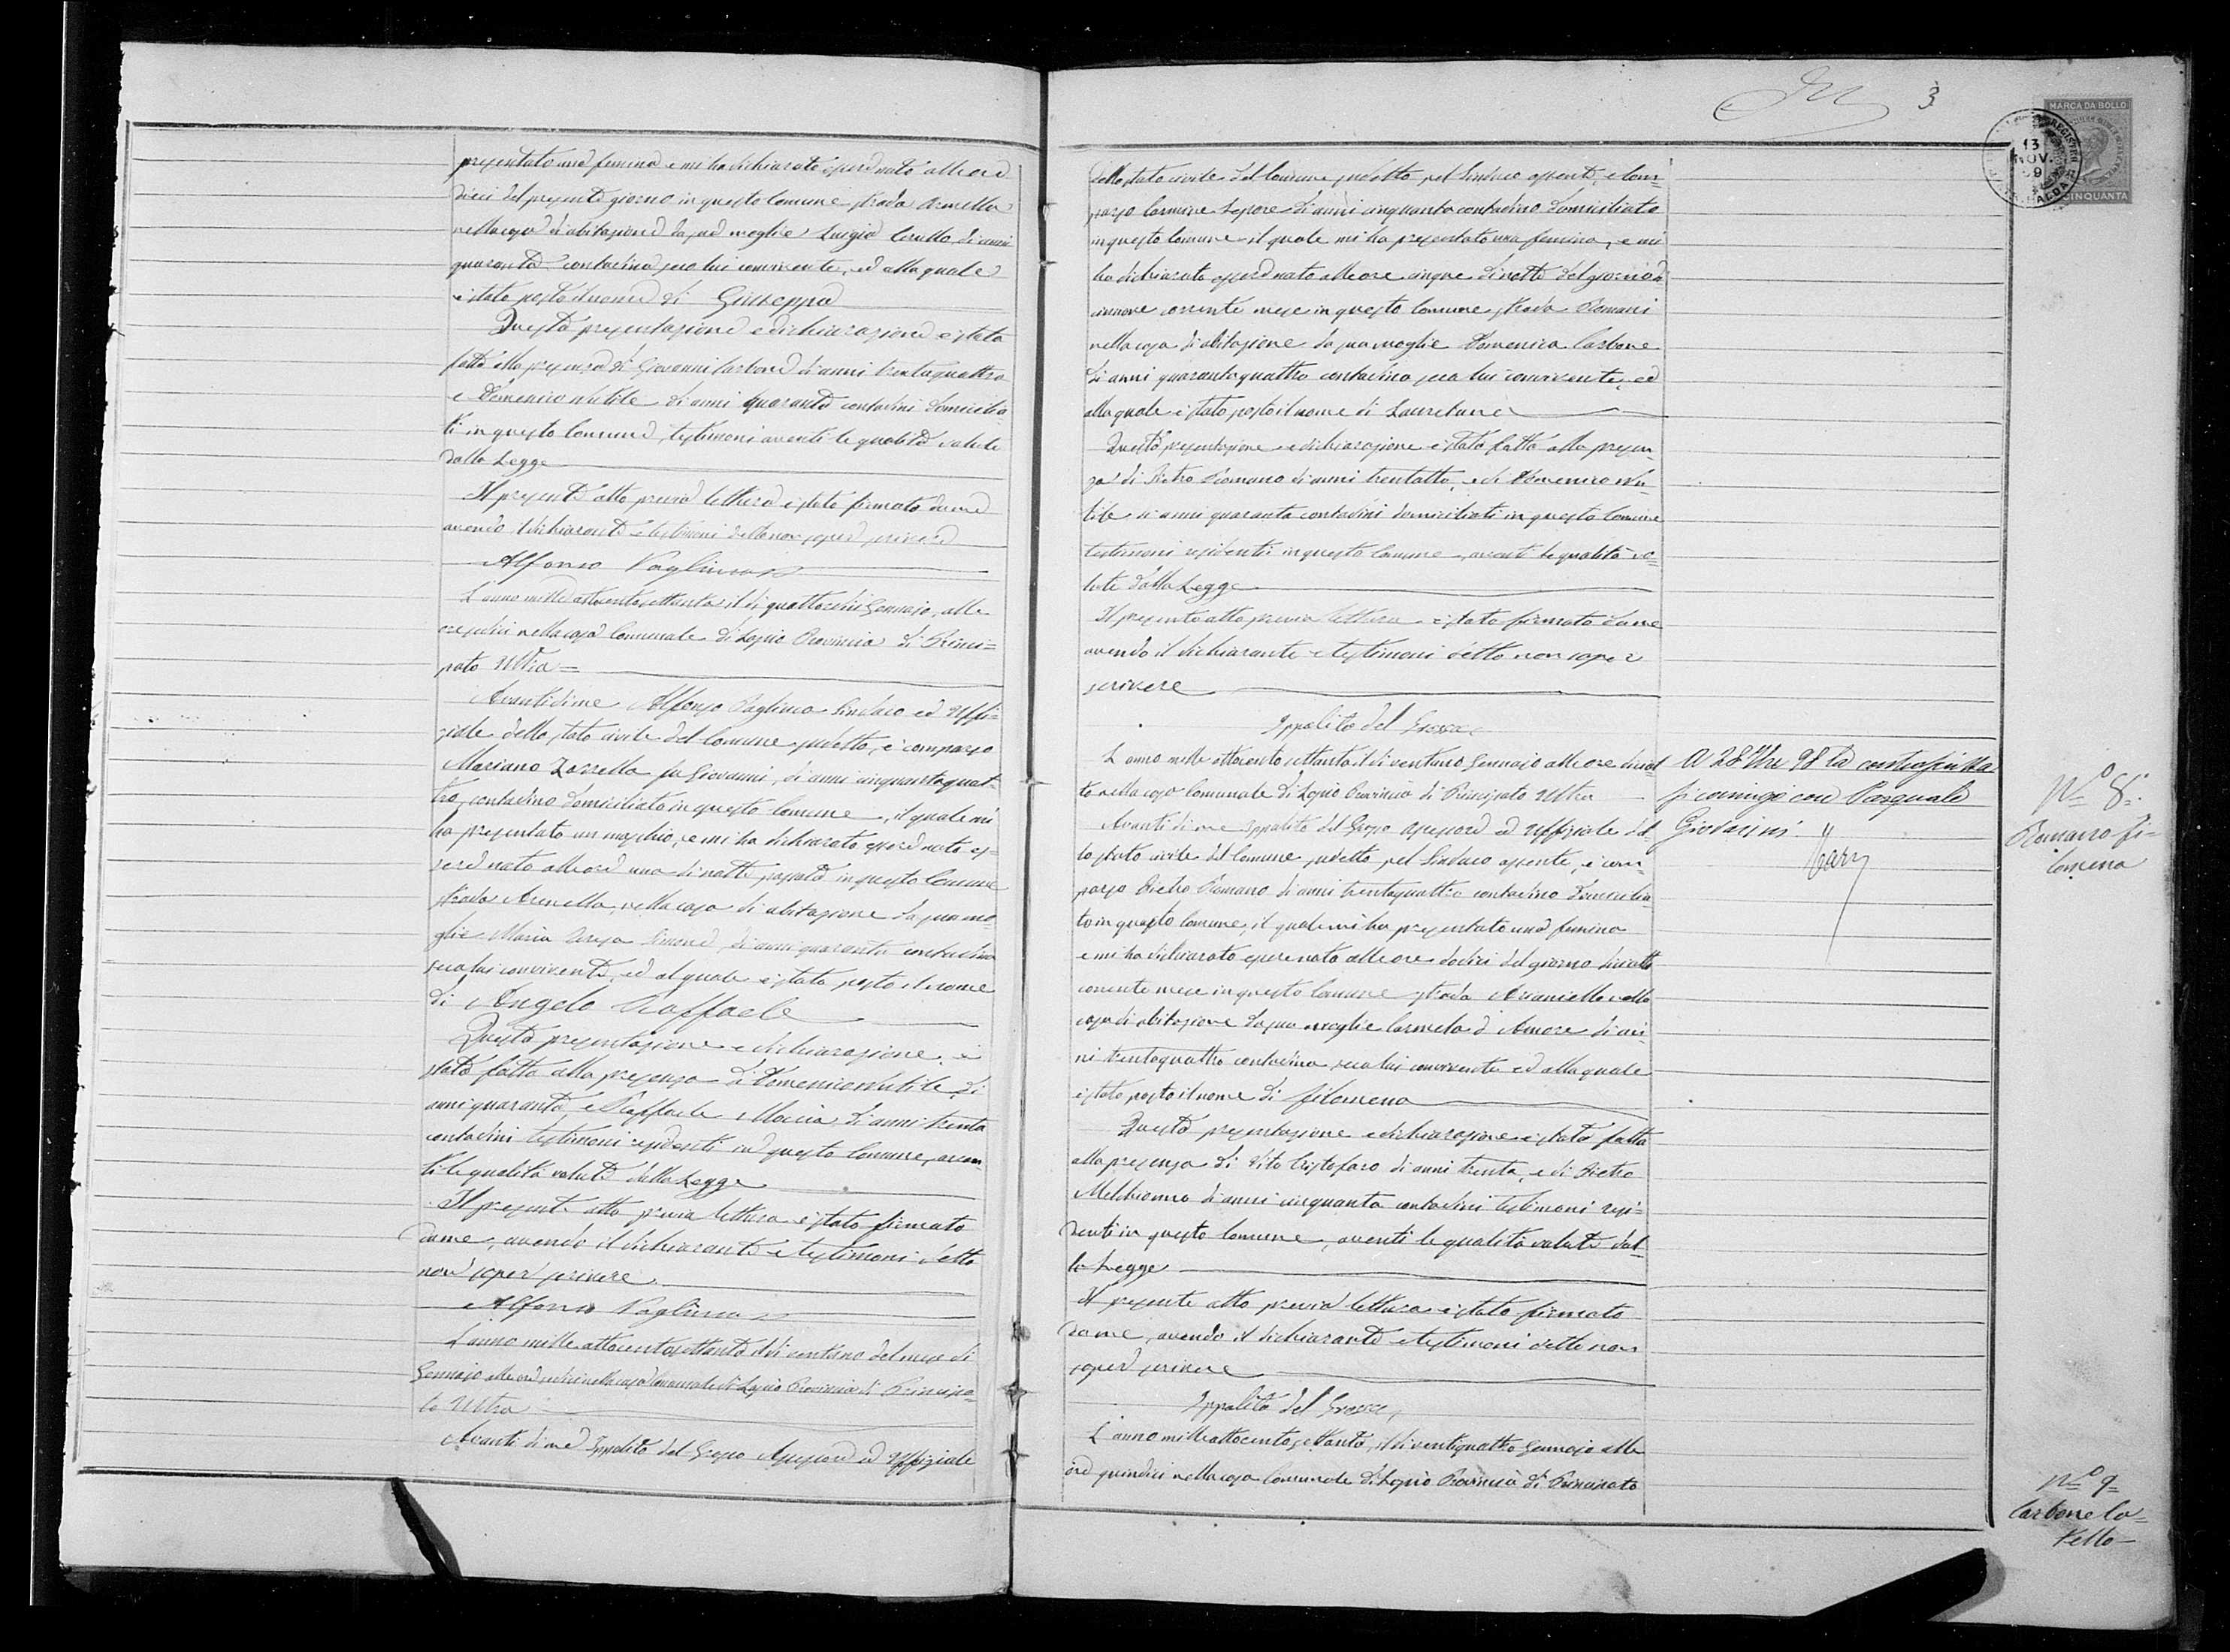 presentato una femina e mi ha dichiarato essere nata alle ore
dieci del presente giorno in questo Comune strada Arenella
nella casa di abitazione da sua moglie Luigia Cerullo di anni
quaranta contadina seco lui convivente, ed alla quale
è stato posto il nome di Giuseppa
Questa presentazione e dichiarazione è stata
fatta alla presenza di Giovanni Carbone di anni trentaquattro
e Domenico Nutile di anni quaranta contadini domicilia
ti in questo Comune, testimoni aventi le qualità volute
dalla Legge
Il presente atto previa lettura è stato firmato da me
avendo il dichiarante e testimoni detto non saper scrivere
Alfonso Pagliuca
L'anno mille ottocento settanta il dì quattordici Gennajo, alle
ore sedici nella casa Comunale di Lapio Provincia di Princi=
pato Ultra =
Avanti di me Alfonso Pagliuca Sindaco ed Uffi=
ziale dello stato civile del Comune sudetto, è comparso
Mariano Zarrella fu Giovanni, di anni cinquantaquat-
tro, contadino domiciliato in questo Comune, il quale mi
ha presentato un maschio, e mi ha dichiarato essere nato es=
sere nato alle ore una di notte passata in questo Comune
strada Arenella, nella casa di abitazione da sua mo=
glie Maria Teresa Simone, di anni quaranta contadina
seco lui convivente, ed al quale è stato posto il nome
di Angelo Raffaele
Questa presentazione e dichiarazione è
stata fatta alla presenza di Domenico Nutile di
anni quaranta, e Raffaele Maccia di anni trenta
contadini testimoni residenti in questo Comune, aven
ti le qualità volute dalla Legge
Il presente atto previa lettura è stato firmato
da me, avendo il dichiarante e testimoni detto
non saper scrivere
Alfonso Pagliuca
L'anno mille ottocento settanta il dì ventuno del mese di
Gennajo alle ore sedici nella casa Comunale di Lapio Provincia di Principa=
to Ultra
Avanti di me Ippolito del Grosso Assessore ed Uffiziale
3
MARCA DA BOLLO
13
NOV.
CINQUANTA
dello stato civile del Comune sudetto pel Sindaco assente, è com=
parso Carmine Lepore di anni cinquanta contadino domiciliato
in questo Comune il quale mi ha presentato una femina, e mi
ha dichiarato essere nata alle ore cinque di notte del giorno di
cinnove corrente mese in questo Comune strada Romani
nella casa di abitazione da sua moglie Domenica Carbone
di anni quarantaquattro contadina seco lui convivente, ed
alla quale è stato posto il nome di Lauretana
Questa presentazione e dichiarazione è stata fatta alla presen=
za di Pietro Romano di anni trentatto, e di Domenico Nu=
tile di anni quaranta contadini domiciliati in questo Comune
testimoni residenti in questo Comune, aventi le qualità vo=
lute dalla Legge
Il presente atto previa lettura è stato firmato da me
avendo il dichiarante e testimoni detto non saper
scrivere
Ippolito del Grosso
L'anno mille ottocento settanta il dì ventuno Gennajo alle ore diciot
to nella casa Comunale di Lapio Provincia di Principato Ultra
Avanti di me Ippolito del Grosso Assessore ed Uffiziale del
lo stato civile del Comune sudetto pel Sindaco assente, è com=
parso Pietro Romano di anni trentaquattro contadino domicilia
to in questo Comune, il quale mi ha presentato una femina
e mi ha dichiarato essere nata alle ore dodici del giorno diciotto
corrente mese in questo Comune strada Arianiello nella
casa di abitazione da sua moglie Carmela d'Amore di an=
ni trentaquattro contadina seco lui convivente ed alla quale
è stato posto il nome di Filomena
Questa presentazione e dichiarazione è stata fatta
alla presenza di Vito Cristofaro di anni trenta, e di Pietro
Melchionno di anni cinquanta contadini testimoni resi=
denti in questo Comune, aventi le qualità volute dal
la Legge
Il presente atto previa lettura è stato firmato
da me, avendo il dichiarante e testimoni detto non
saper scrivere
Ippolito del Grosso
L'anno mille ottocento settanta, il dì ventiquattro Gennajo alle
ore quindici nella casa Comunale di Lapio Provincia di Principato
A 28 98 la controscritta
si coniugò con Pasquale
Giovanni
N.º 8.
Romano Fi=
lomena
N.º 9=
Carbone Ca=
tello